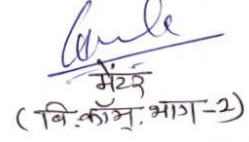 मेंटर
(बि.कॉम. भाग-२)